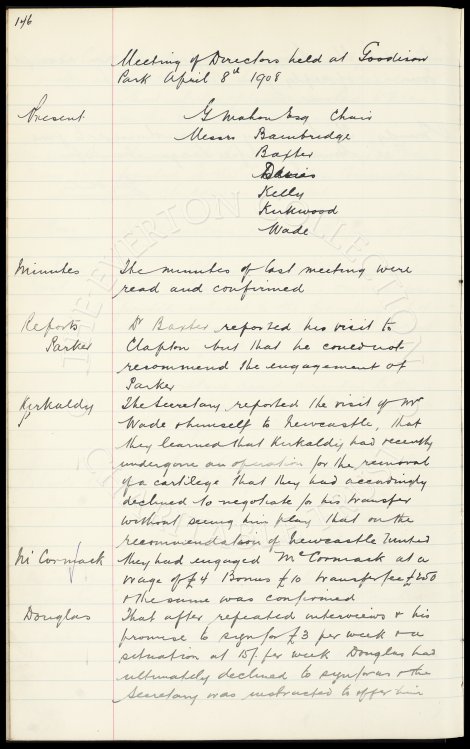 146
Meeting of Directors held at Goodison
Park April 8th 1908
Present G Mahon Esq Chair
Messrs Bainbridge
Baxter
Davies
Kelly
Kirkwood
Wade
Minutes The minutes of last meeting were
read and confirmed
Reports Dr Baxter reported his visit to
Parker Clapton but that he could not
recommend the engagement of
Parker
Kirkaldy The Secretary reported the visit of Mr
Wade & himself to Newcastle, that
they learned that Kirkaldy had recently
undergone an operation for the removal
of a cartilege that they had accordingly
declined to negotiate for his transfer
without seeing him play that on the
recommendation of Newcastle United
McCormack they had engaged McCormack at a
wage of £4 Bonus £10 transfer fee £250
& the same was confirmed
Douglas That after repeated interviews & his
promise to sign for £3 per week & a
situation at 15/ per week Douglas had
ultimately declined to sign for us & the
Secretary was instructed to offer him
THE EVERTON COLLECTION